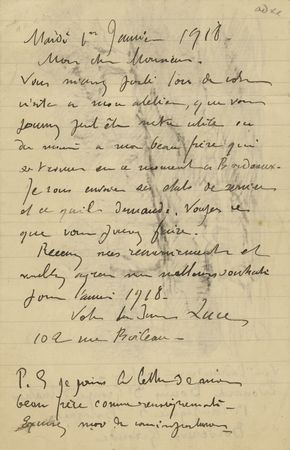 Mardi 1er Janvier 1918.
Mon cher Monsieur.
Vous m'avez parlé lors de votre
visite a mon atelier, que vous
pouviez peut être utile ou
du moins a mon beau frère qui
se trouve en ce moment a Bordeaux.
Je vous envoie ses états de services
et ce qu'il demande. Voyez ce
que vous pouvez faire.
Recevez mes remerciements et
veuillez agréer mes meilleurs souhaits
pour l'année 1918.
Votre Luce
102 rue Boileau
P.S je joins la lettre de mon
beau frère comme renseignements
Excusez moi de